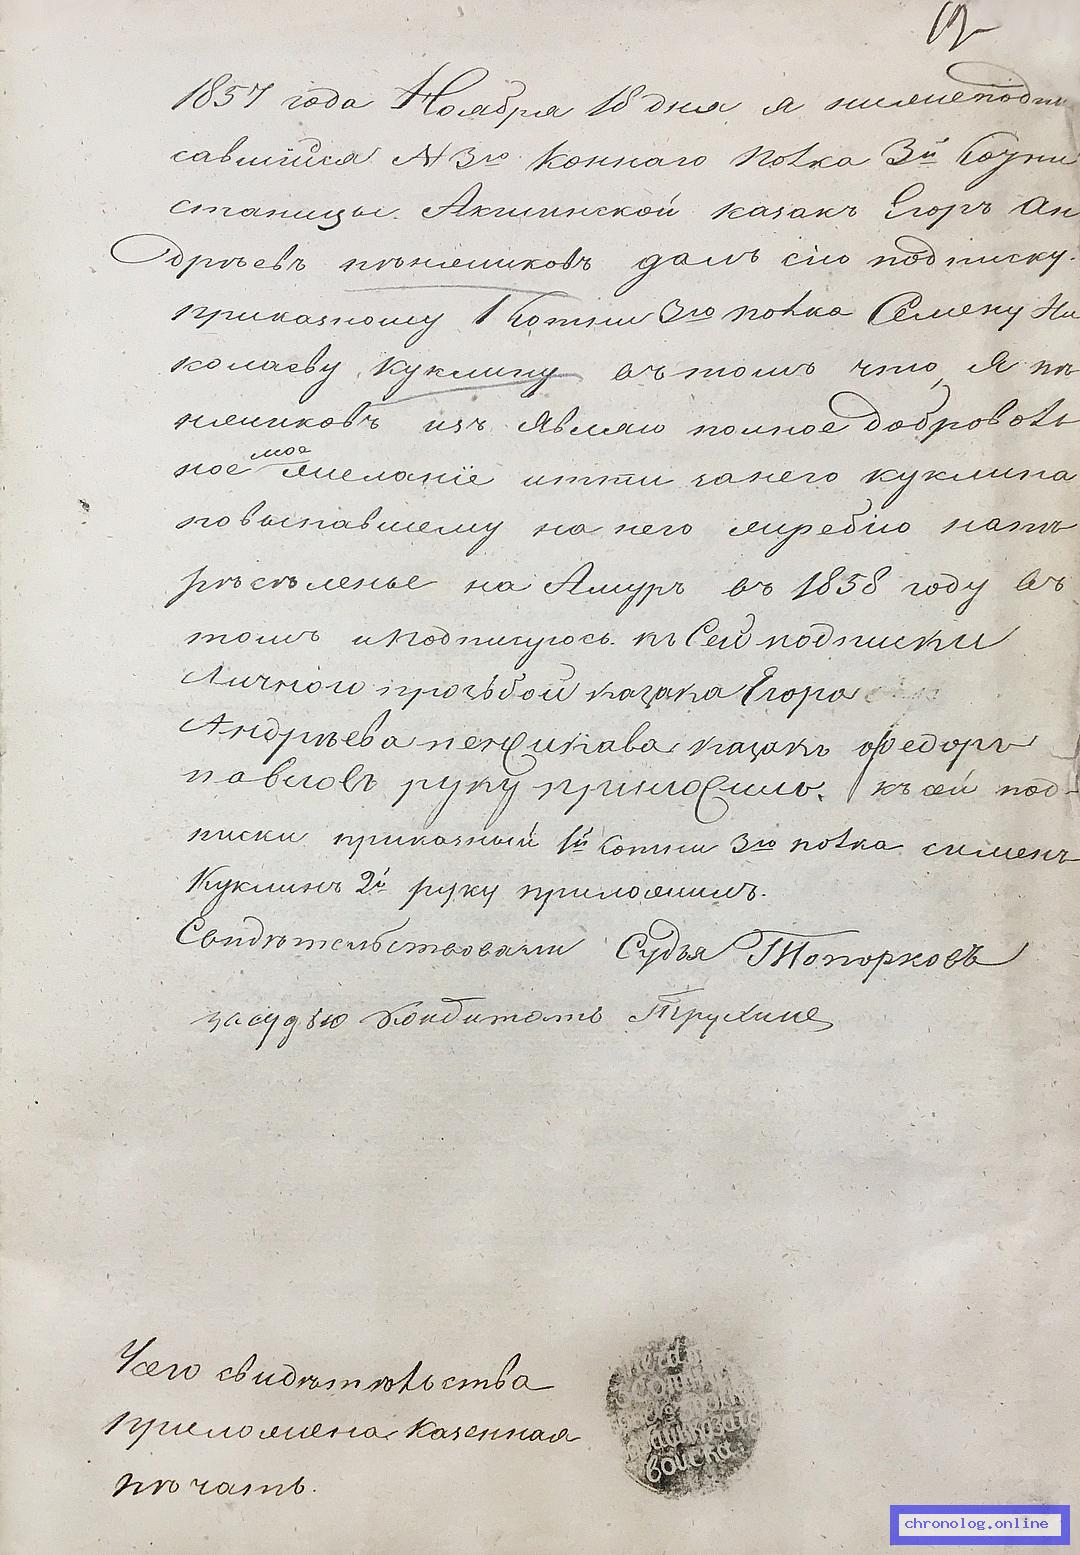 1857 года Ноября 18 дня я нижеподпи
савшийся № 3го Коннаго полка 3й Сотни
станицы Акшинской казакъ Егоръ Ан
дрѣевъ пѣнежиковъ далъ сію подписку.
приказному 1 Сотни 3го полка Семену Ни
колаеву Куклину въ томъ что, Я пѣ
нежиковъ изъ являю полное доброволь
ное мое желаніе итти занего куклина
повыпавшему на него жребію напѣ
рѣсѣленье на Амуръ въ 1858 году въ
томъ иподписуюсь. къ Сей подписки
Личною прозьбой казака Егора
Андрѣева пенжикава казакъ Федоръ
павловъ руку приложилъ. къ сей под-
писки приказный 1й Сотни 3го полка сименъ
Куклинъ 2й руку приложилъ.
Свидѣтельствовали Судья Топорковъ
засудью Кондитатъ Трухинъ
Чего свидѣтѣльства
приложена казенная
пѣчать.
войска.
chronolog.online